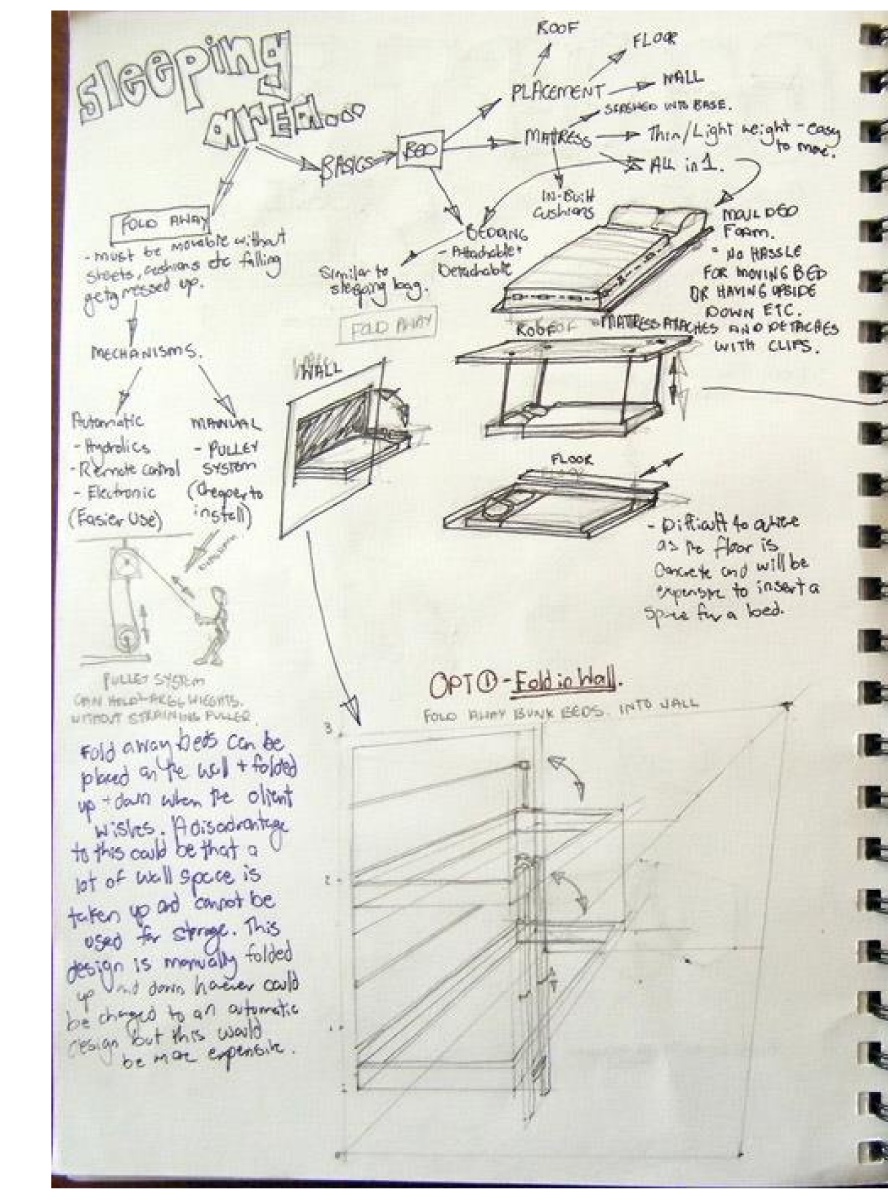 sleeping
area...
ROOF
FLOOR
PLACEMENT
WALL
STASHED INTO BASE.
BASICS
BED
MATRESS
Thin/Light weight - easy
to move.
ALL in 1.
IN-Built
Cushions
FOLD AWAY
- must be movable without
sheets, cushions etc falling
messed up.
BEDDING
- Attachable +
Detachable
Similar to
sleeping bag.
FOLD AWAY
MOULDED
FORM.
* NO HASSLE
FOR MOVING BED
OR HAVING UPSIDE
DOWN ETC.
MATTRESS ATTACHES AND DETACHES
WITH CLIPS.
ROOF
WALL
MECHANISMS.
Automatic
- Hydrolics
- Remote control
- Electronic
(Easier Use)
MANUAL
- PULLEY
SYSTEM
(Cheaper to
install)
FLOOR
- Difficult to
as the floor is
Concrete and will be
expensive to insert a
space for a bed.
PULLEY SYSTEM
CAN HOLD LARGE WEIGHTS.
WITHOUT STRAINING PULLER.
OPT ① - Fold in Wall.
FOLD AWAY BUNK BEDS. INTO WALL
Fold away beds can be
placed on the wall + folded
up + down when the client
wishes. A disadvantage
to this could be that a
lot of wall space is
taken up and cannot be
used for storage. This
design is manually folded
up and down however could
be changed to an automatic
design but this would
be more expensive.
3
2
1